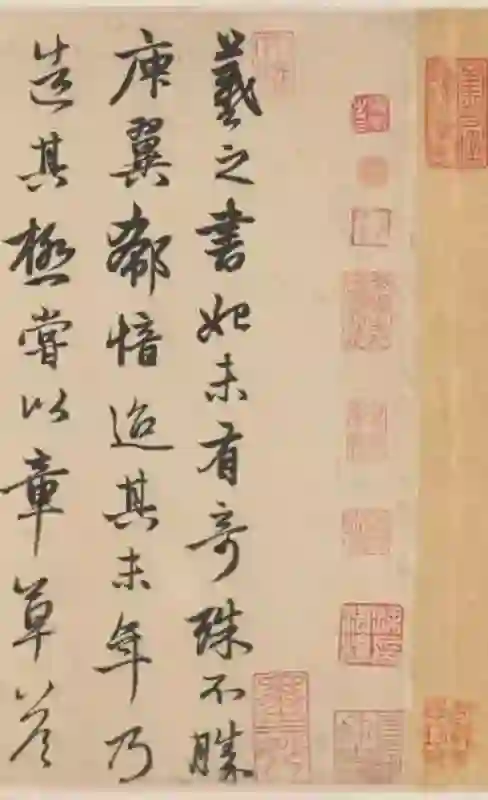 羲之書始未有奇殊不勝
庾翼郗愔迨其末年乃
造其極嘗以章草答